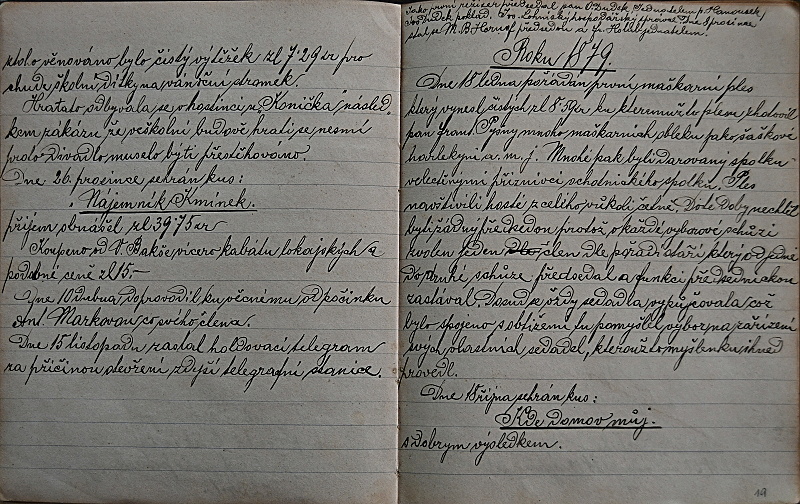 z toho věnováno bylo čistý výtěžek zl 7·29 kr pro
chudé školní dítky na vánoční stromek.
Hra tato odbyvala se v hostinci u „Koníčka" násled
kem zákazu že ve školní budově hrati se nesmí
proto Divadlo muselo býti přestěhováno.
Dne 26. prosince sehrán kus:
Nájemník Kmínek.
příjem obnášel zl 39·75 kr
Koupeno od V. Bakše vícero kabátů lokajských a
podobní ceně zl 15.–
Dne 10 dubna doprovodil ku věčnému odpočinku
Ant. Markovou co svého člena.
Dne 15 listopadu zaslal holdovací telegram
za příčinou otevření zdejší telegrafní stanice.
Jako první režiser předsedal pan O. Dudek, Jednatelem p. Hanousek,
Jos. Dudek poklad. Jos. Lohniský hospodářský správce. Dne 8 prosince
stal se M. B. Hornof předsedou a Fr. Holub jednatelem.
Roku 1879.
Dne 18 ledna pořádán první maškarní ples
který vynesl čistých zl 8·59 kr ku kterémuž to plesu zhotovil
pan Frant. Pyšný mnoho maškarních obleků jako šaškové
harlekyni a. m. j. Mnohé pak byli darovány spolku
velectěnými příznivci ochotnického spolku. Ples
navštívili hosté z celého vůkolí četně. Do té doby nechtěl
býti žádný předsedou protož o každé výborové schůzi
zvolen jeden člen dle pořadí stáří který od jedné
do druhé schůze předsedal a funkci předsednickou
zastával. Dosud vždy sedadla vypůjčovala což
bylo spojeno s obtížemi tu pomýšlel výbor na zařízení
svých vlastních sedadel, kteroužto myšlenku ihned
provedl.
Dne 18 října sehrán kus:
Kde Domov můj.
s dobrým výsledkem.
19